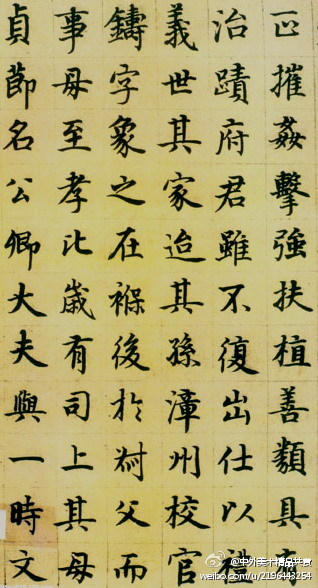 正摧姦擊強扶植善類具
治蹟府君雖不復出仕以禮
義世其家迨其孫漳州校官
鑄字象之在褓後於叔父而
事母至孝比歲有司上其母
貞節名公卿大夫與一時文
@中外美术精品共赏
weibo.com/u/2196443254